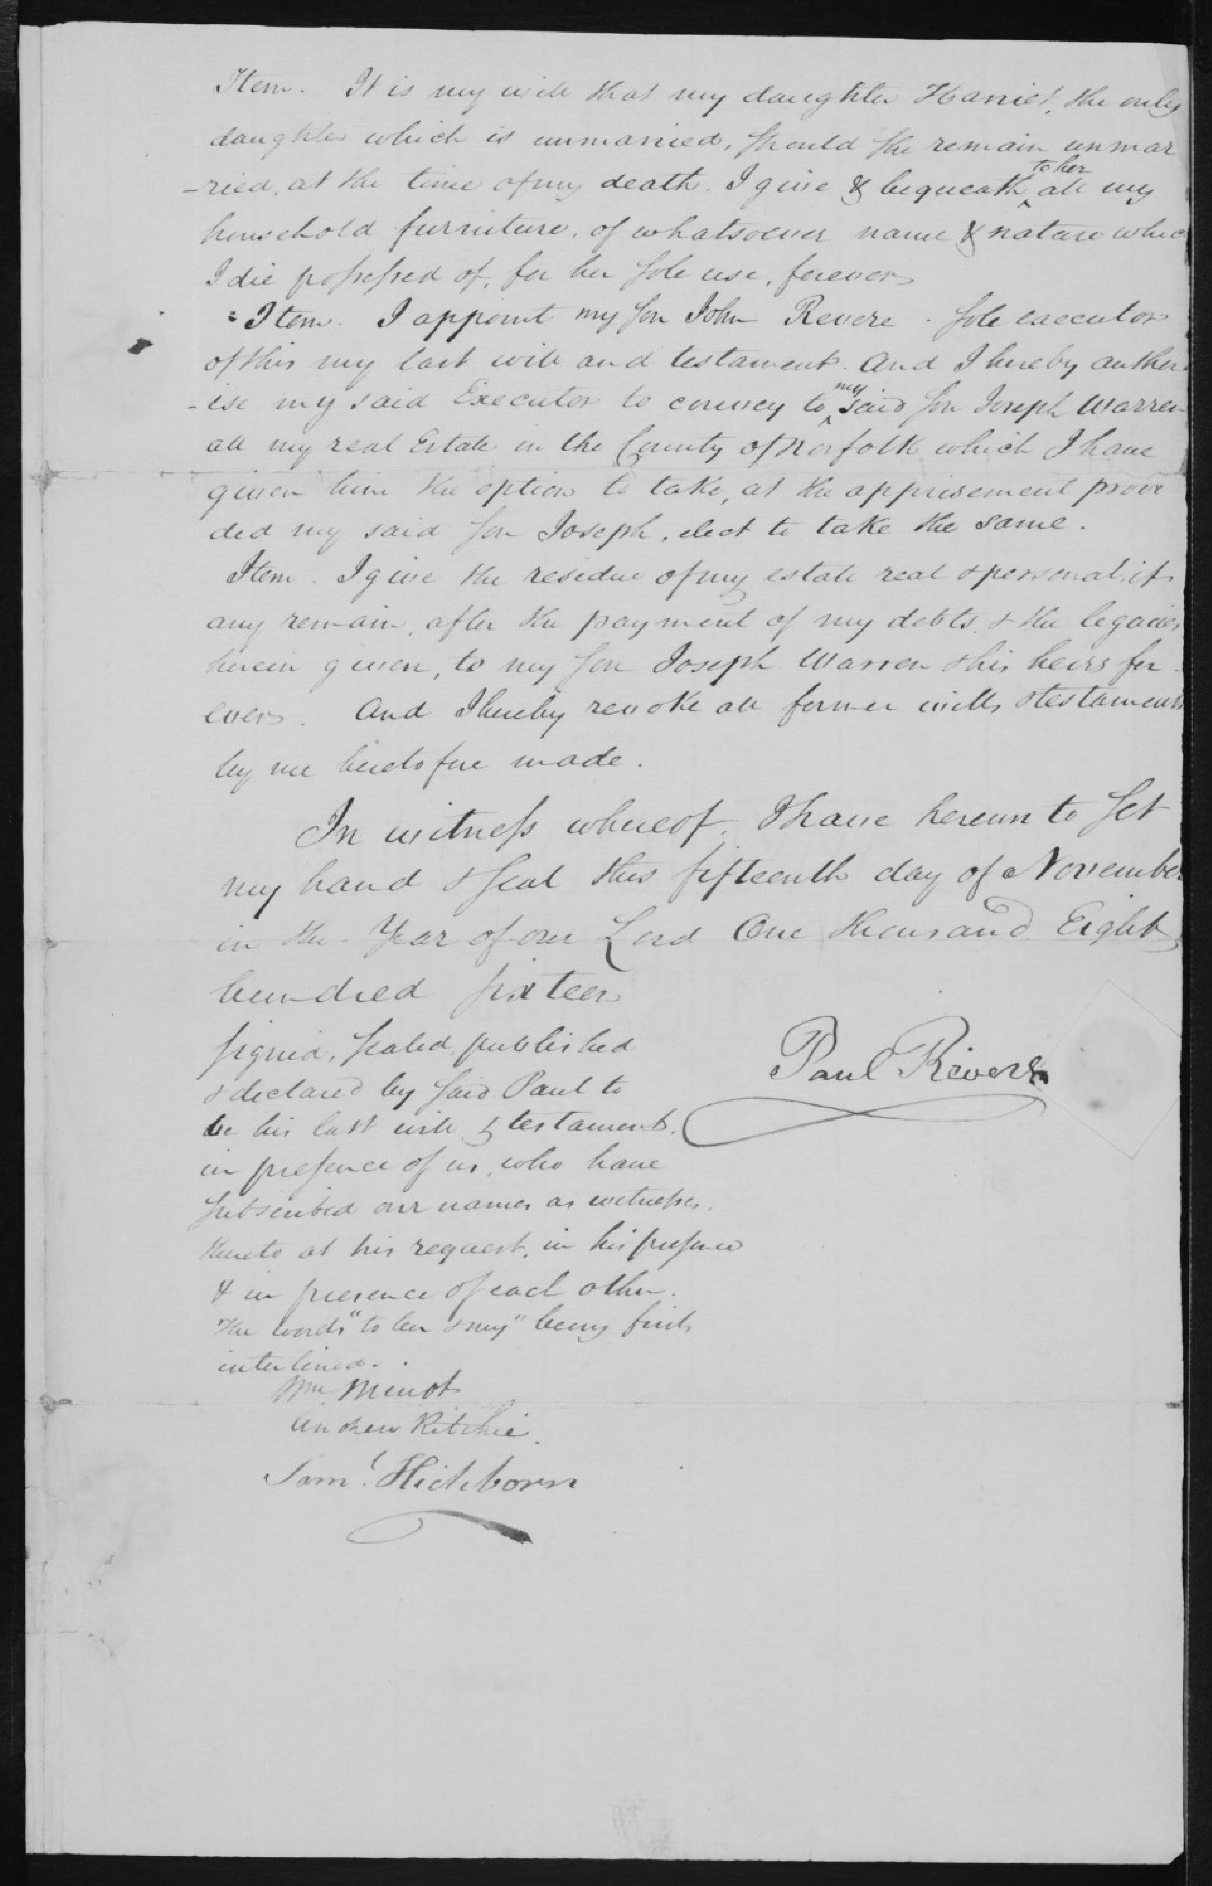 Item. It is my will that my daughter Harriet, the only
daughter which is unmarried, should she remain unmar
-ried, at the time of my death. I give & bequeath to her all my
household furniture, of whatsoever name & nature whic
I die possessed of, for her sole use, forever
Item. I appoint my son John Revere sole executor
of this my last will and testament. And I hereby author
-ise my said Executor to convey to my said son Joseph Warren
all my real Estate in the County of Norfolk which I have
given him the option to take, at the apprisement provi
ded my said son Joseph, elect to take the same.
Item. I give the residue of my estate real & personal, if
any remain, after the payment of my debts & the legacies
herein given, to my son Joseph Warren & his heirs for
ever. And I hereby revoke all former wills & testaments
by me heretofore made.
In witness whereof, I have hereunto set
my hand & seal this fifteenth day of November
in the Year of our Lord One thousand Eight
hundred sixteen
signed, sealed, published
& declared by said Paul to
be his last will & testament,
in presence of us, who have
subscribed our names as witnesses,
thereto at his request, in his presence
& in presence of each other.
The words "to her & my" being first
interlined.
Paul Revere
Wm Minot
Andrew Ritchie
Saml. Hichborn